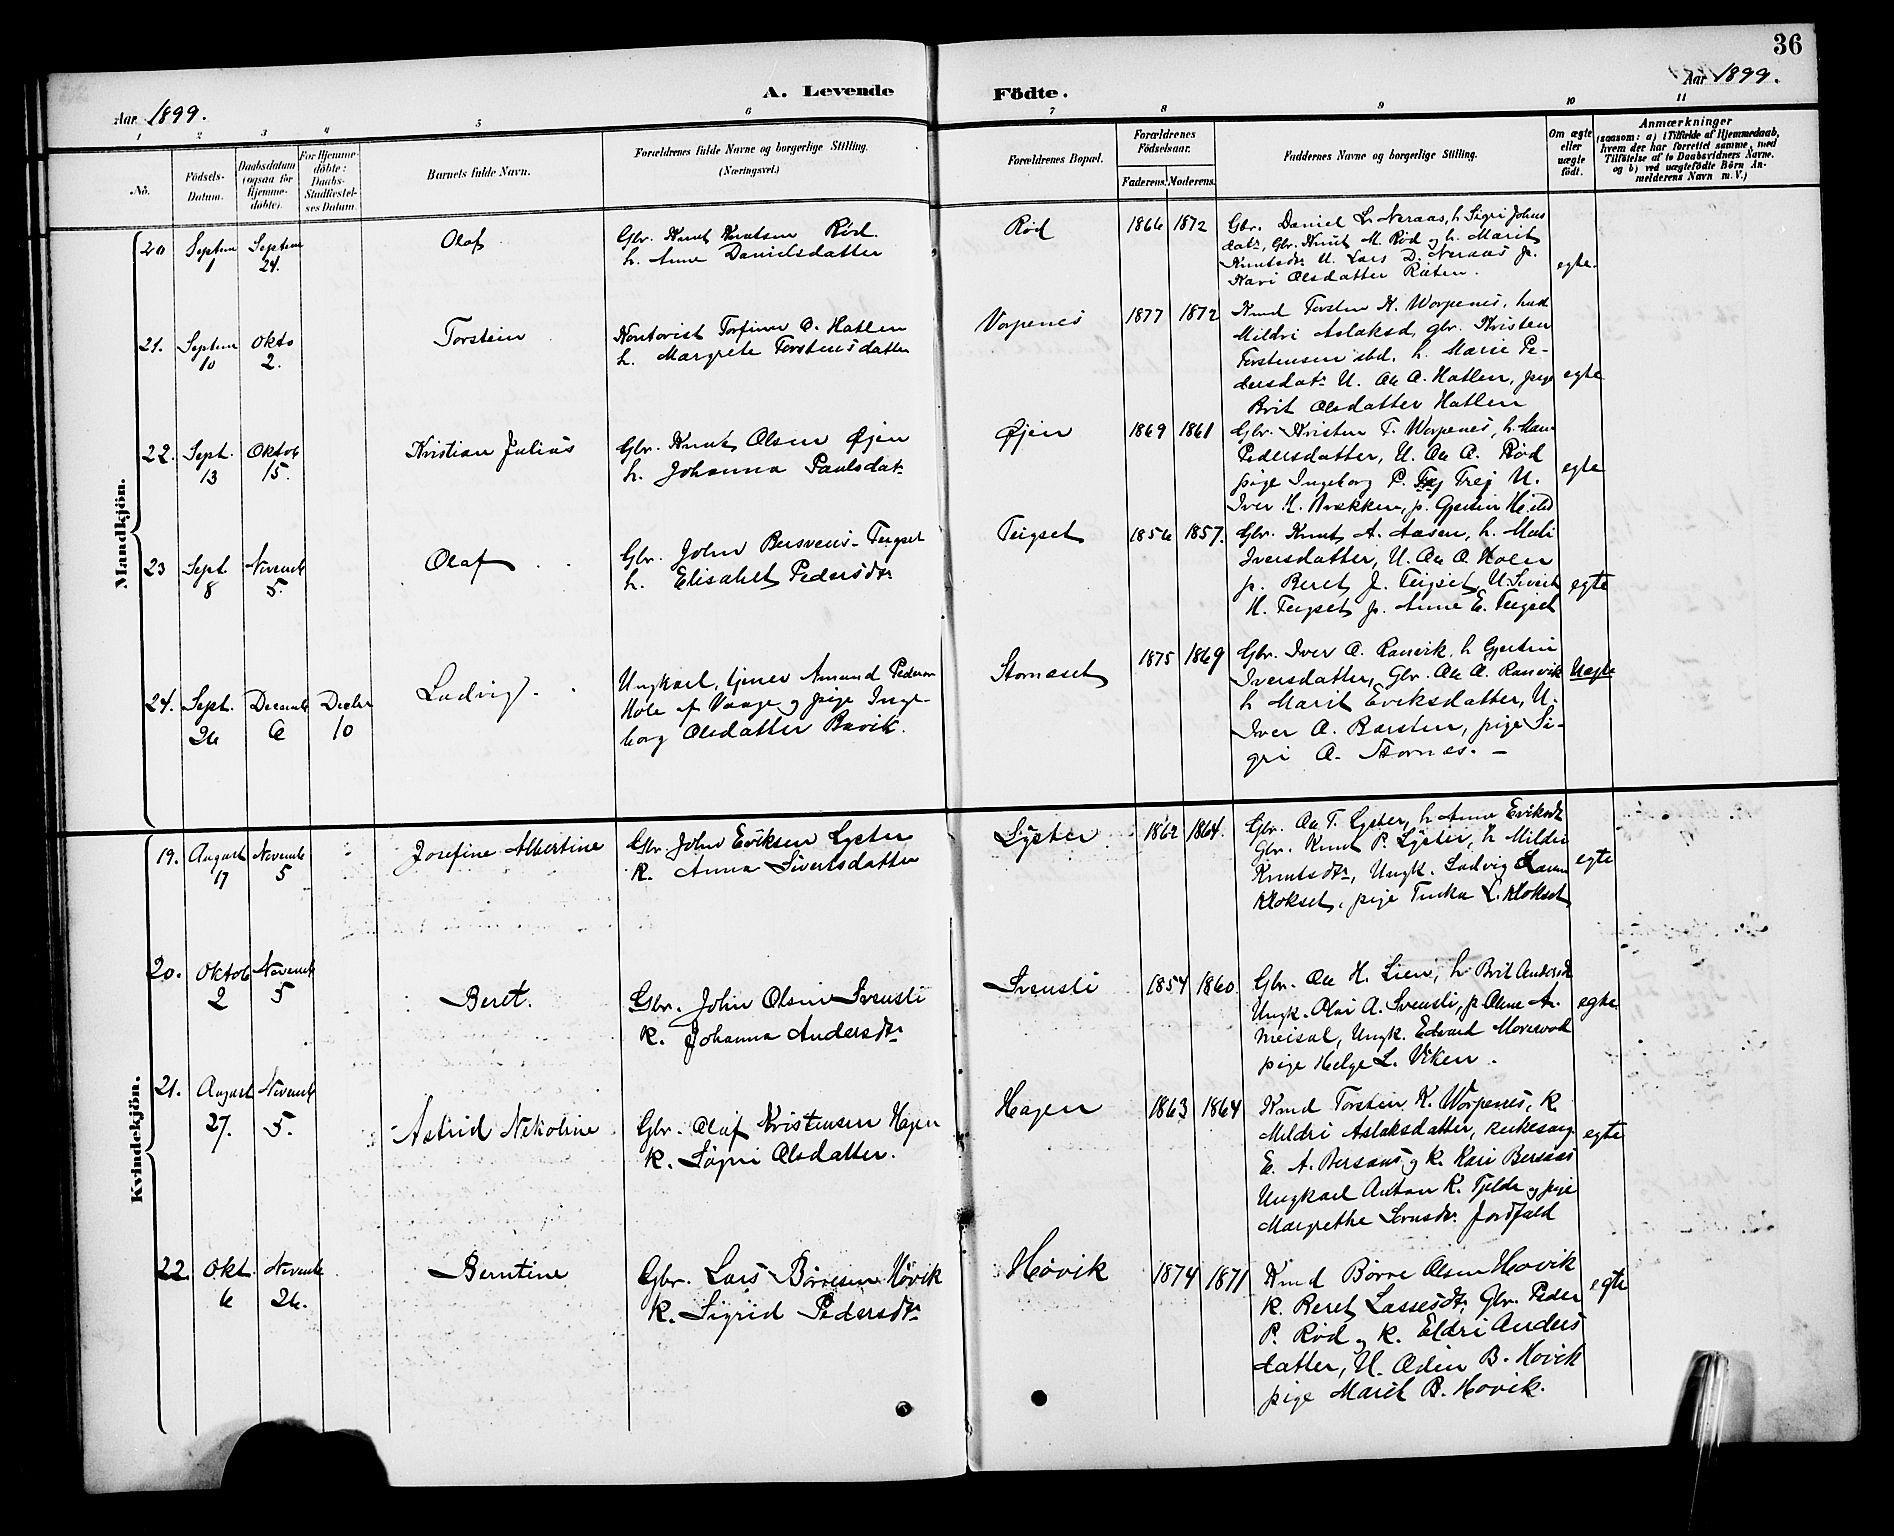 36
Aar 1899.
A. Levende Födte.
Aar 1899.
1 2 3 4 5 6 7 8 9 10 11
No.
Födsels-Datum.
Daabsdatum (ogsaa for Hjemme-döbte).
For Hjemme-döbte: Daabs-Stadfæstel-ses Datum.
Barnets fulde Navn.
Forældrenes fulde Navne og borgerlige Stilling.
(Næringsvei.)
Forældrenes Bopæl.
Forældrenes Födselsaar.
Faderens. Moderens.
Faddernes Navne og borgerlige Stilling.
Om ægte eller uægte födt.
Anmærkninger
(saasom: a) i Tilfælde af Hjemmedaab,
hvem der har forrettet samme, med
Tilföielse af to Daabsvidners Navne.
og b) ved uægtefödte Börn An-
melderens Navn m. V.)
Mandkjön.
20 Septem 1 Septem 24.
Olaf
Gbr. Knut Knutsen Rød.
h. Anne Danielsdatter
Rød 1866 1872
Gbr. Daniel L. Neraas, h. Sigri Johns
datr, Gbr. Knut M. Rød og h. Marit
Knutsdr. U. Lars D. Neraas p.
Kari Olsdatter Røten.
egte.
21. Septem 10 Okto 2.
Torstein
Kontorist Torfinn O. Hatlen
h. Margrete Torstensdatter
Vorpenes 1877 1872
Kmd Torsten K. Worpenes, hust
Mildri Aslaksd, gbr. Kristen
Torstensen sbd. h. Marie Pe-
dersdatr U. Ole O. Hatlen, pige
Brit Olsdatter Hatlen
egte
22. Sept. 13 Oktob 15.
Kristian Julius
Gbr. Knut Olsen Øjen
h. Johanna Paulsdatr
Øjen 1869 1861
Gbr. Kristen T. Worpenes, h. Mari
Pedersdatter, U. Ole O. Rød
pige Ingeborg P. Trej U.
Iver K. Brækken, p. Gjertin
egte
23 Sept 8 Novemb 5.
Olaf
Gbr. John Bersvens. Teigset
h. Elisabet Pedersdtr
Teigset 1856 1857.
Gbr. Knut A. Aasen, h. Mali
Iversdatter, U. Ole O. Holen
p. Beret J. Teigset, U. Sivert
H. Teigset p. Anne E. Teigset
egte
24. Sept. 26 Decemb 6 Decbr 10
Ludvig
Ungkarl, tjener Amund Pedersen
Hole af Vaage og pige Inge-
borg Olsdatter Buvik.
Stornæset 1875 1869
Gbr. Iver O. Ranvik, h. Gjertin
Iversdatter, Gbr. Ole O. Ranvik
h Marit Eriksdatter, U.
Iver A. Barsten, pige Si-
gri O. Stornæs. –
Uægte
Kvindekjön.
19. August 17 Novemb 5
Josefine Albertine
Gbr. John Eriksen Lyster
K. Anna Sivertsdatter
Lyster 1862 1864.
Gbr. Ole T. Lyster, h Anne Eriksdt
Gbr. Knut P. Lyster, h Mildri
Knutsdtr, Ungk. Ludvig
Klokset, pige Tinka L. Klokset
egte
20. Oktob 2 Novemb 5
Beret.
Gbr. John Olsen Svensli
K. Johanna Andersdtr
Svensli 1854 1860.
Gbr. Ole H. Lien, h. Brit Andersdt
Ungk. Olai A. Svensli, p. Oline A.
Meisal, Ungk. Edvard
pige Helge L. Viken.
egte
21. August 27. Novemb 5.
Astrid Nekoline
Gbr. Olaf Kristensen Hagen
K. Søgni Olsdatter.
Hagen 1863 1864
Kmd Torsten K. Worpenes, K.
Mildri Aslaksdatter, kirkesang.
E. A. Bersaas og K. Kari Bersaas
Ungkarl Anton K. Tjelde og pige
Margrethe Jordfald
egte
22. Okt 6 Novemb 26.
Berntine
Gbr. Lars Børresen Høvik
K. Sigrid Pedersdtr
Høvik 1874 1871
Kmd Børre Olsen Hovik
K. Beret Lassesdtr, Gbr. Peder
P. Rød og K. Eldri Anders
datter, U. Odin B. Hovik
pige Marit B. Hovik.
egte